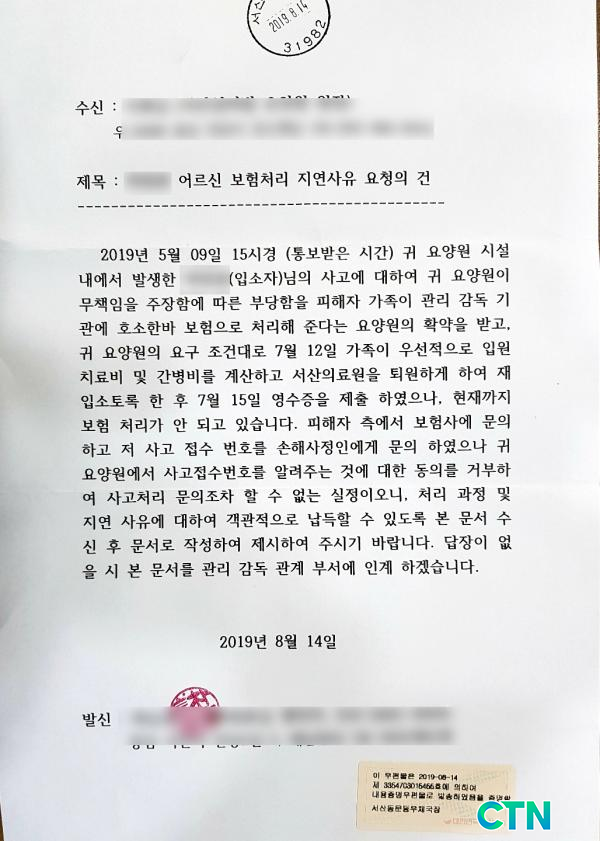 2019.8.14
31982
수신 :
제목 : 어르신 보험처리 지연사유 요청의 건
2019년 5월 09일 15시경 (통보받은 시간) 귀 요양원 시설
내에서 발생한 (입소자)님의 사고에 대하여 귀 요양원이
무책임을 주장함에 따른 부당함을 피해자 가족이 관리 감독 기
관에 호소한바 보험으로 처리해 준다는 요양원의 확약을 받고,
귀 요양원의 요구 조건대로 7월 12일 가족이 우선적으로 입원
치료비 및 간병비를 계산하고 서산의료원을 퇴원하게 하여 재
입소토록 한 후 7월 15일 영수증을 제출 하였으나, 현재까지
보험 처리가 안 되고 있습니다. 피해자 측에서 보험사에 문의
하고 저 사고 접수 번호를 손해사정인에게 문의 하였으나 귀
요양원에서 사고접수번호를 알려주는 것에 대한 동의를 거부하
여 사고처리 문의조차 할 수 없는 실정이오니, 처리 과정 및
지연 사유에 대하여 객관적으로 납득할 수 있도록 본 문서 수
신 후 문서로 작성하여 제시하여 주시기 바랍니다. 답장이 없
을 시 본 문서를 관리 감독 관계 부서에 인계 하겠습니다.
2019년 8월 14일
발신
이 우편물은 2019-08-14
제 3354703015466호에 의하여
내용증명우편물로 발송하였음을 증명함
서산동문동우체국장
CTN